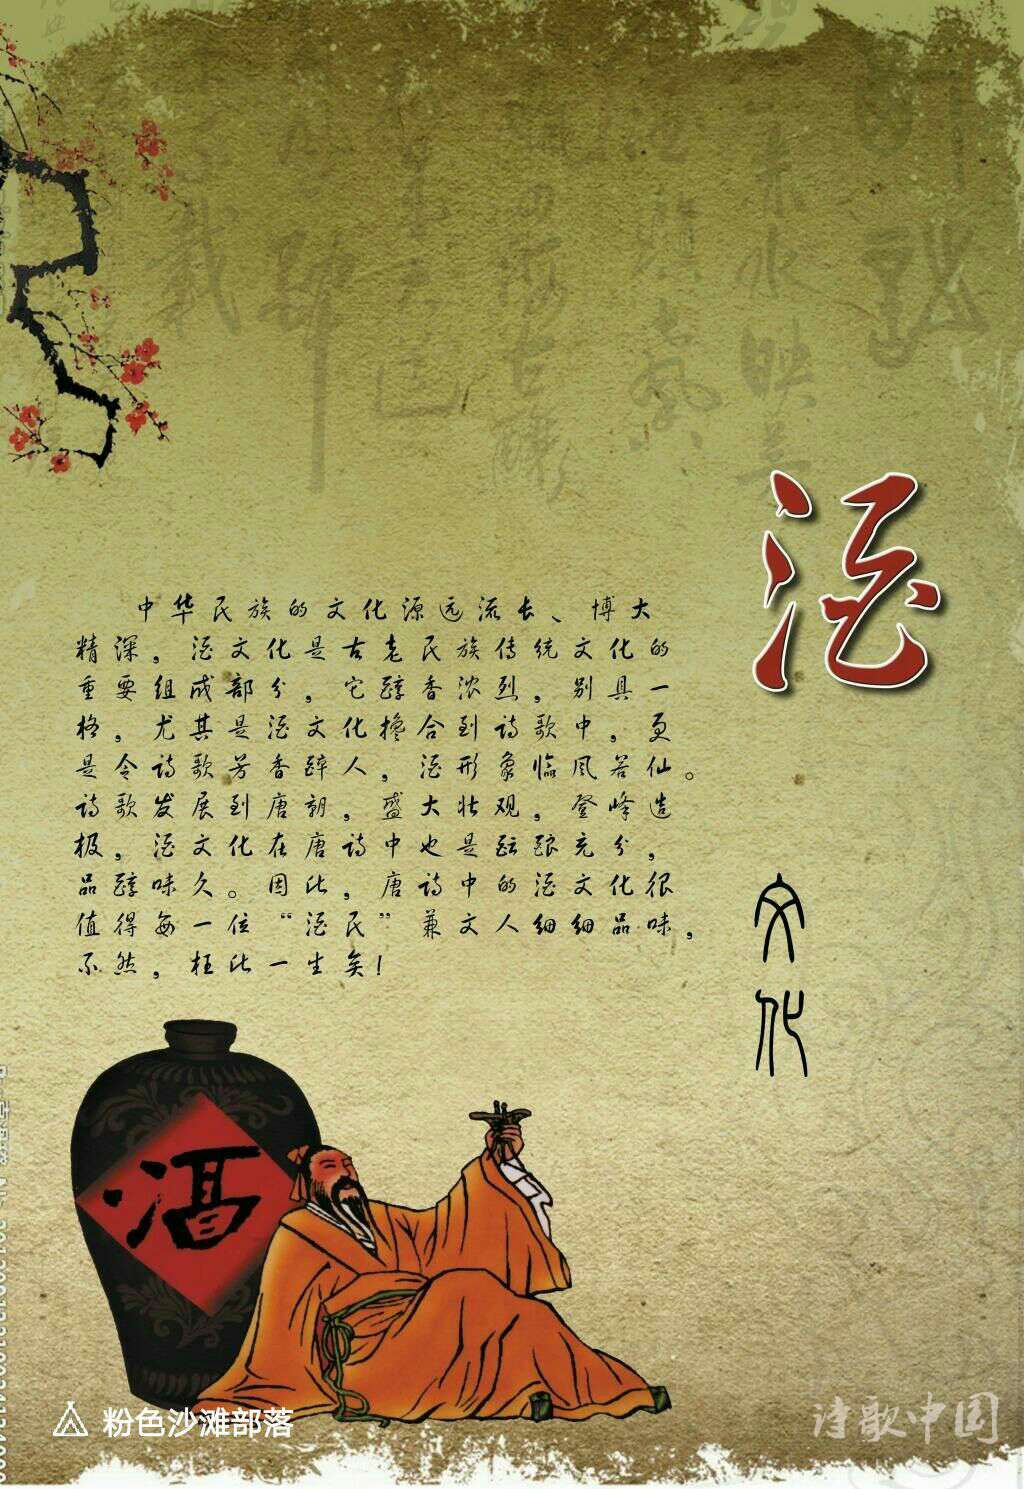 酒
文化
中华民族的文化源远流长、博大
精深，酒文化是古老民族传统文化的
重要组成部分，它醇香浓烈，别具一
格，尤其是酒文化搀合到诗歌中，更
是令诗歌芳香醉人，酒形象临风若仙。
诗歌发展到唐朝，盛大壮观，登峰造
极，酒文化在唐诗中也是酝酿充分，
品醇味久。因此，唐诗中的酒文化很
值得每一位“酒民”兼文人细细品味，
不然，枉此一生矣！
酒
粉色沙滩部落
诗歌中国